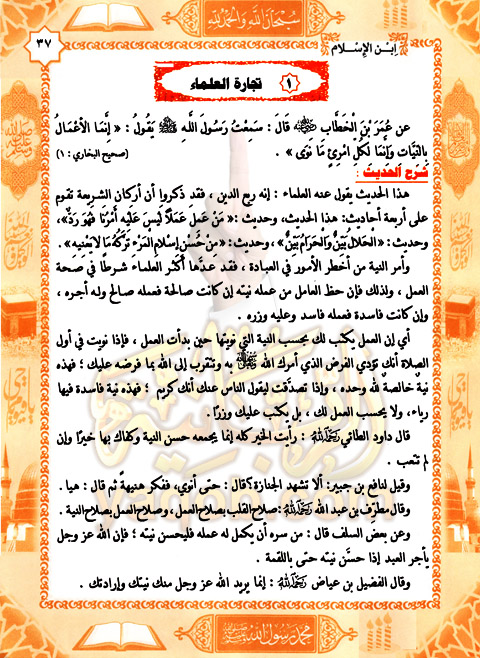 سبحان الله والحمد لله
ابن الإسلام
٣٧
١ تجارة العلماء
عن عُمَرَ بْنِ الْخَطَّابِ ﵁ قَالَ : سَمِعْتُ رَسُولَ اللَّهِ ﷺ يَقُولُ : « إِنَّمَا الأَعْمَالُ
بِالنِّيَّاتِ وَإِنَّمَا لِكُلِّ امْرِئٍ مَا نَوَى » . (صحيح البخاري : ١)
شرح الحديث :
هذا الحديث يقول عنه العلماء : إنه ربع الدين ، فقد ذكروا أن أركان الشريعة تقوم
على أربعة أحاديث: هذا الحديث، وحديث: « مَنْ عَمِلَ عَمَلًا لَيْسَ عَلَيْهِ أَمْرُنَا فَهُوَ رَدٌّ»،
وحديث: « الْحَلَالُ بَيِّنٌ وَالْحَرَامُ بَيِّنٌ» ، وحديث: « مِنْ حُسْنِ إِسْلَامِ الْمَرْءِ تَرْكُهُ مَا لَا يَعْنِيهِ» .
وأمر النية من أخطر الأمور في العبادة ، فقد عدَّها أكثر العلماء شرطًا في صحة
العمل ، ولذلك فإن حظ العامل من عمله نيته إن كانت صالحة فعمله صالح وله أجره ،
وإن كانت فاسدة فعمله فاسد وعليه وزره .
أي إن العمل يكتب لك بحسب النية التي نويتها حين بدأت العمل ، فإذا نويت في أول
الصلاة أنك تؤدي الفرض الذي أمرك الله ﷻ به وتتقرب إلى الله بما فرضه عليك ؛ فهذه
نية خالصة لله وحده ، وإذا تصدَّقت ليقول الناس عنك أنك كريم ؛ فهذه نية فاسدة فيها
رياء، ولا يحسب العمل لك ، بل يكتب عليك وزرًا .
قال داود الطائي رحمه الله : رأيت الخير كله إنما يجمعه حسن النية وكفاك بها خيرًا وإن
لم تتعب .
وقيل لنافع بن جبير: ألا تشهد الجنازة ؟ قال : حتى أنوي، ففكر هنيهةً ثم قال : هيا .
وقال مطرِّف بن عبد الله رحمه الله : صلاح القلب بصلاح العمل ، وصلاح العمل بصلاح النية .
وعن بعض السلف قال : من سره أن يكمل له عمله فليحسن نيته ؛ فإن الله عز وجل
يأجر العبد إذا حسَّن نيته حتى باللقمة .
وقال الفضيل بن عياض رحمه الله : إنما يريد الله عز وجل منك نيتك وإرادتك .
محمد رسول الله